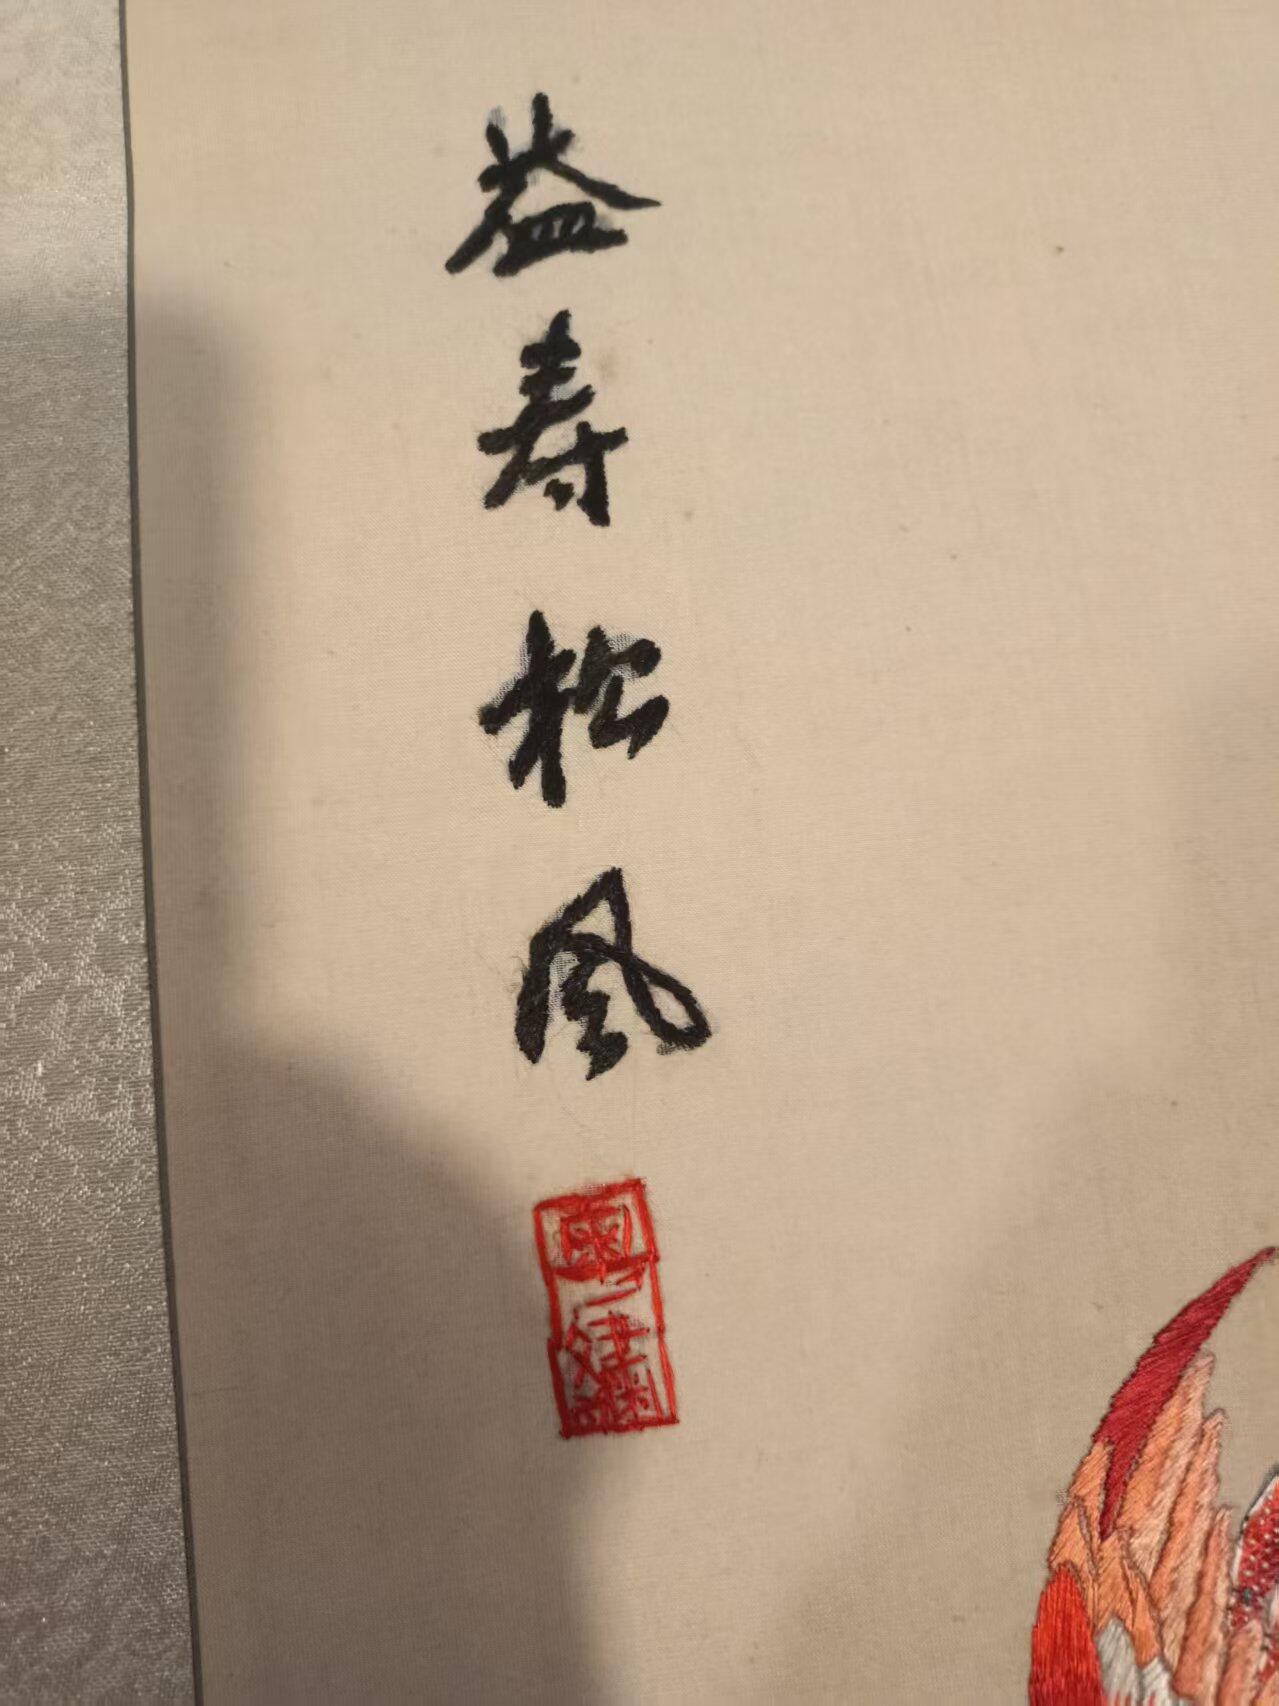 益寿松风